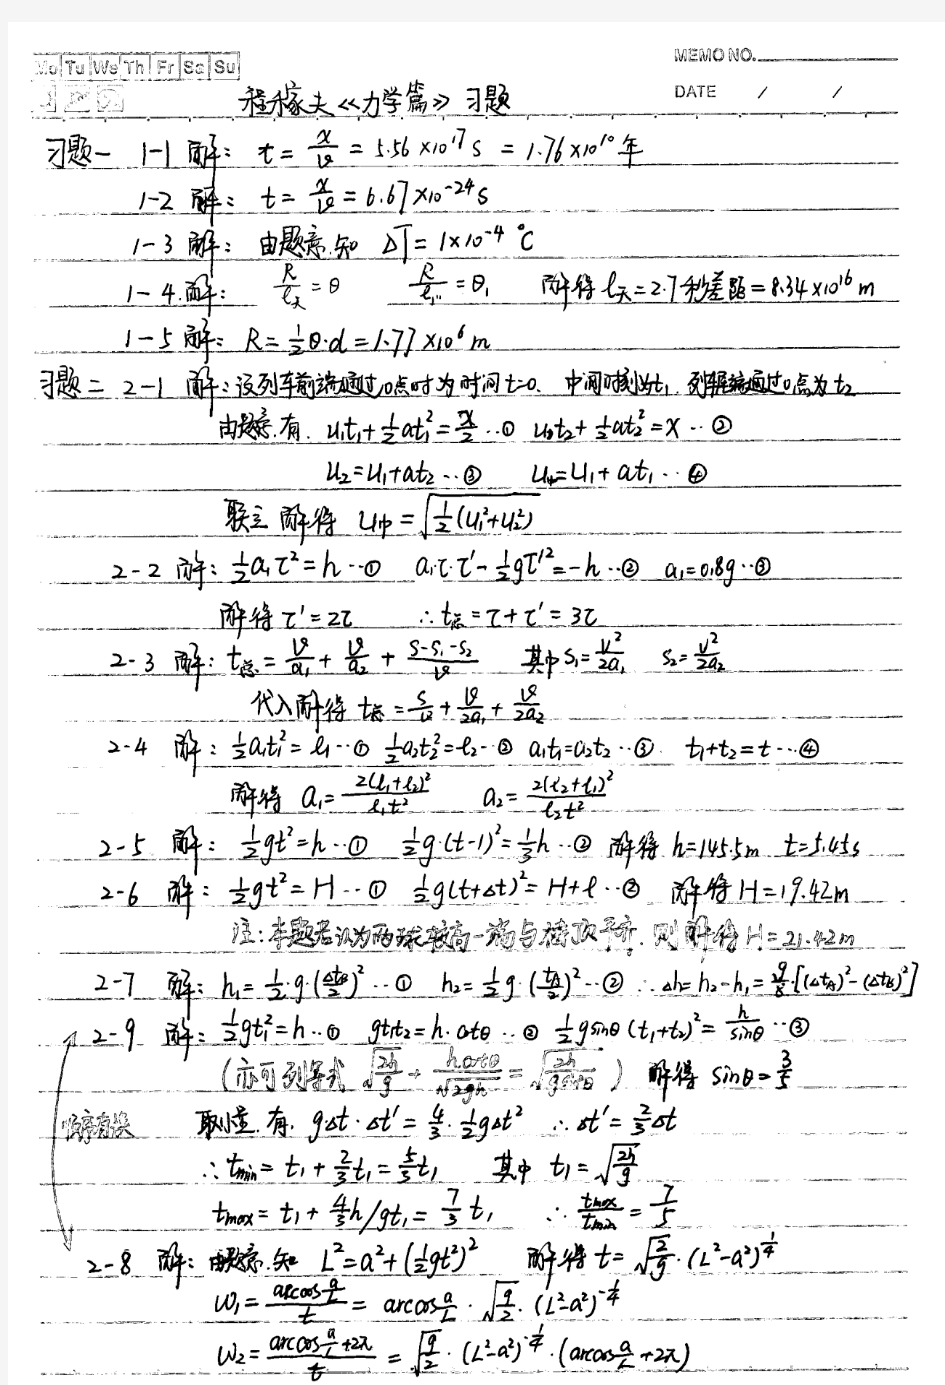 Mo Tu We Th Fr Sa Su
MEMO NO.
DATE / /
程稼夫《力学篇》习题
习题一 1-1 解: t = x/v = 5.56×10^17 s = 1.76×10^10 年
1-2 解: t = x/v = 6.67×10^-24 s
1-3 解: 由题意知 ΔT = 1×10^-4 ℃
1-4 解: R/l天 = θ R/l1" = θ1 解得 l天 = 2.7秒差距 = 8.34×10^16 m
1-5 解: R = 1/2 θ·d = 1.77×10^6 m
习题二 2-1 解: 设列车前端通过o点时为时间t=0. 中间时刻为t1, 列车尾端通过o点为t2
由题意有. u1t1 + 1/2 at1² = x/2 ··① u1t2 + 1/2 at2² = x ··②
u2 = u1 + at2 ··③ u中 = u1 + at1 ··④
联立 解得 u中 = √(1/2(u1²+u2²))
2-2 解: 1/2 a1τ² = h ··① a1τ·τ' - 1/2 gτ'² = -h ··② a1 = 0.8g ··③
解得 τ' = 2τ ∴ t总 = τ + τ' = 3τ
2-3 解: t总 = v/a1 + v/a2 + (S-S1-S2)/v 其中 S1 = v²/2a1 S2 = v²/2a2
代入解得 t总 = S/v + v/2a1 + v/2a2
2-4 解: 1/2 a1t1² = l1 ··① 1/2 a2t2² = l2 ··② a1t1 = a2t2 ··③ t1+t2 = t ···④
解得 a1 = 2(l1+l2)²/l1t² a2 = 2(l2+l1)²/l2t²
2-5 解: 1/2 gt² = h ··① 1/2 g·(t-1)² = 1/3 h ··② 解得 h = 145.5m t = 5.45s
2-6 解: 1/2 gt² = H ··① 1/2 g(t+Δt)² = H+l ··② 解得 H = 19.42m
注: 本题若认为两球较高一端与楼顶平齐. 则解得 H = 21.42m
2-7 解: h1 = 1/2·g·(ΔtB/2)² ··① h2 = 1/2 g·(tA/2)² ··② ∴ Δh = h2-h1 = g/8·[(ΔtA)²-(ΔtB)²]
2-9 解: 1/2 gt1² = h ··① gt1t2 = h·cotθ ··② 1/2 g sinθ (t1+t2)² = h/sinθ ··③
(亦可列等式 √(2h/g) + hcotθ/√(2gh) = √(2h/gsin²θ)) 解得 sinθ = 3/5
顺序有误
取小量. 有. gΔt·Δt' = 4/3·1/2 gΔt² ∴ Δt' = 2/3 Δt
∴ tmin = t1 + 2/3 t1 = 5/3 t1 其中 t1 = √(2h/g)
tmax = t1 + 4/3 h/gt1 = 7/3 t1 ∴ tmax/tmin = 7/5
2-8 解: 由题意知 L² = a² + (1/2 gt²)² 解得 t = √(2/g)·(L²-a²)^1/4
ω1 = arccos(a/L)/t = arccos a/L · √(g/2)·(L²-a²)^-1/4
ω2 = (arccos a/L + 2π)/t = √(g/2)·(L²-a²)^-1/4·(arccos a/L + 2π)